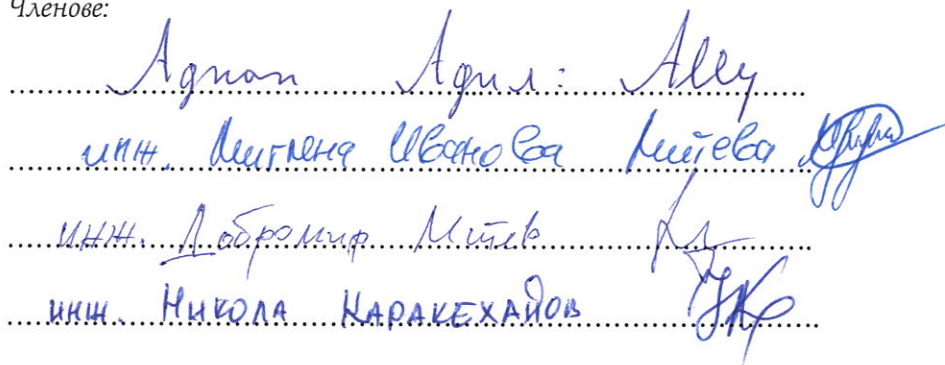 Членове:
Аднан Адил:
инж. Миглена Иванова Митева
инж. Добромир Митев
инж. НИКОЛА КАРАКЕХАЙОВ